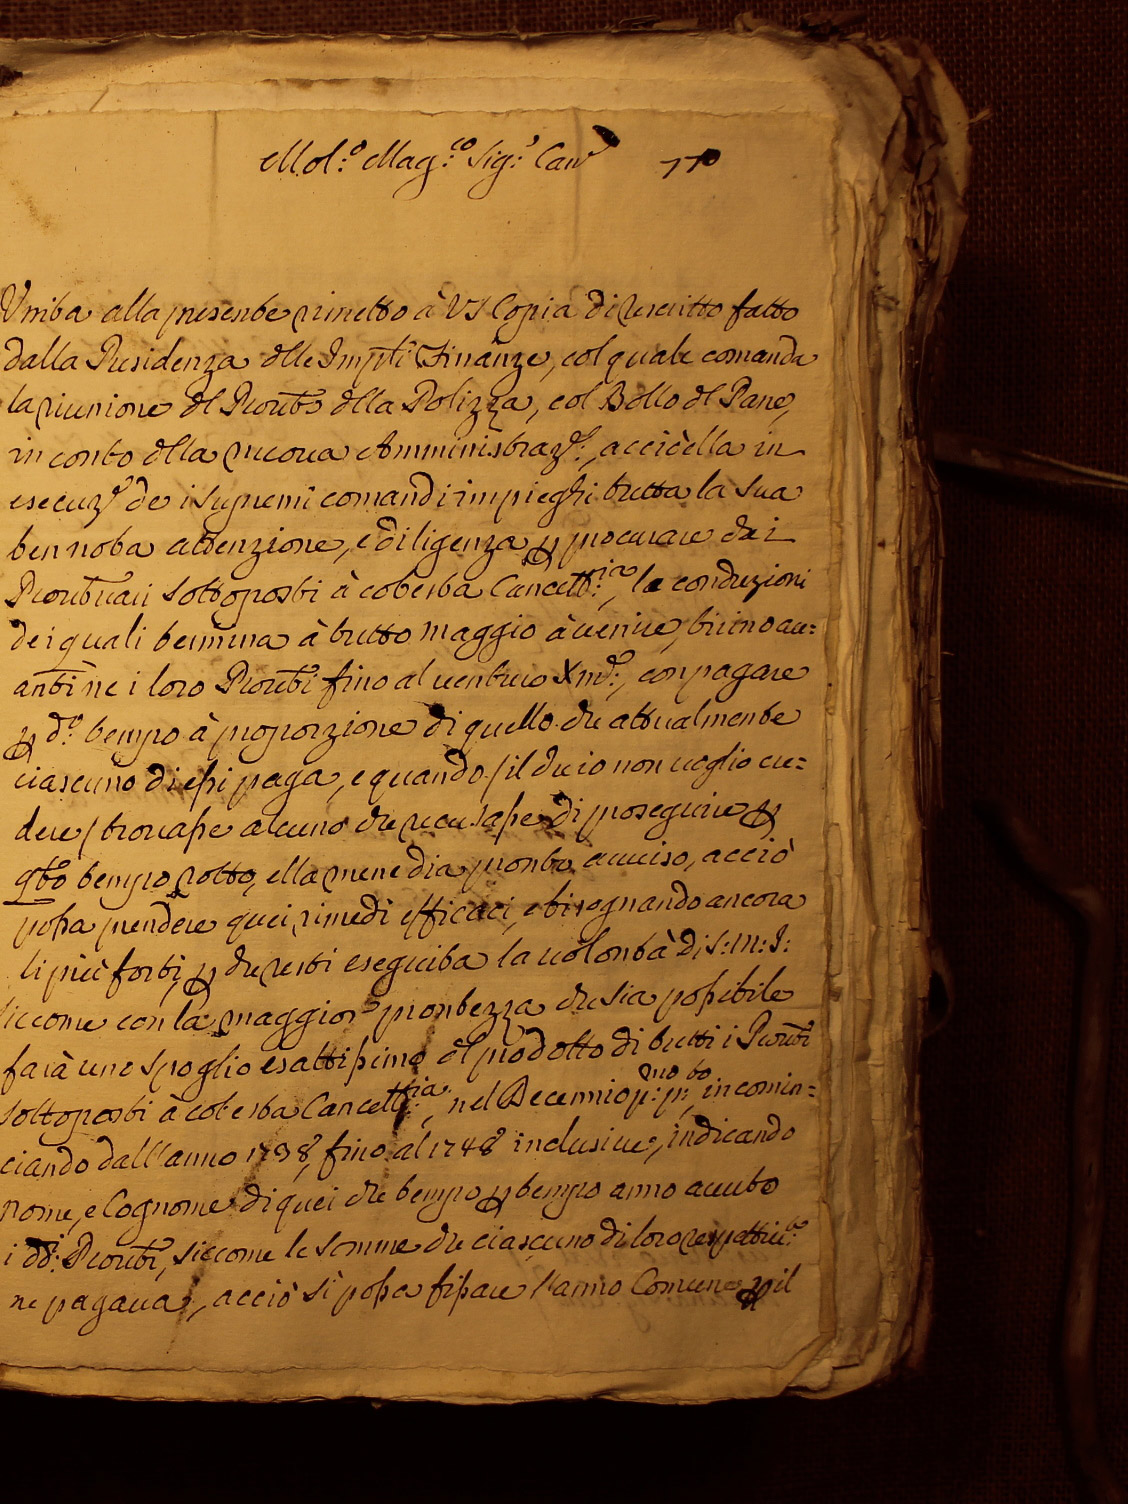 Mol:º Mag:co Sig:r Canc 770
Unita alla presente rimetto à VS Copia di rescritto fatto
dalla Presidenza dlle Impli Finanze, col quale comanda
la riunione dl Prouto dlla Polizza, col Bollo dl Pane,
in conto dlla nuoua Amministraze:, acciò ella in
esecuze de i supremi comandi impieghi tutta la sua
ben nota attenzione, e diligenza p procurare che i
Prouentuari sottoposti à cotesta Cancellria:, le conduzioni
dei quali termina à tutto Maggio à uenire, tirino au=
anti ne i loro Prouti fino al uenturo Xmbre:, con pagare
p do: tempo à proporzione di quello che attualmente
ciascuno di essi paga, e quando /il che io non uoglio cre=
dere/ trouasse alcuno che recusasse di proseguire p
qto tempo rotto, ella me ne dia pronto auuiso, acciò
possa prendere quei rimedi efficaci, e bisognando ancora
li più forti, p che resti eseguita la uolontà di S: M: I:
siccome con la maggior prontezza che sia possibile
farà uno spoglio esattissimo dl prodotto di tutti i Prouti
sottoposti à cotesta Cancellria:, nel Decennio pmo: pto:, incomin=
ciando dall'anno 1738, fino al 1748 inclusiue, indicando
nome, e Cognome di quei che tempo p tempo anno auuto
i ddi: Prouti, siccome le somme che ciascuno di loro respettiute:
ne pagaua, acciò si possa fissare l'anno Comune, p il